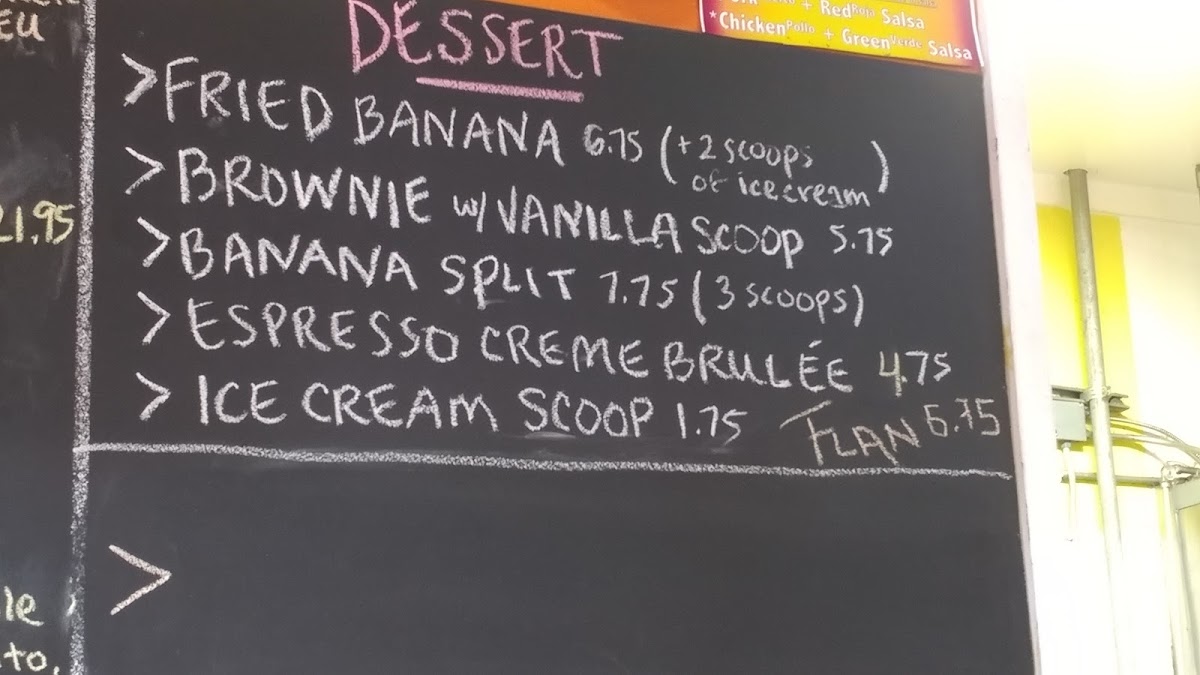 EU
21.95
le
to,
+ Red Roja Salsa
*Chicken Pollo + Green Verde Salsa
DESSERT
>FRIED BANANA 6.75 (+2 scoops of ice cream)
>BROWNIE w/ VANILLA SCOOP 5.75
>BANANA SPLIT 7.75 (3 scoops)
>ESPRESSO CREME BRULÉE 4.75
>ICE CREAM SCOOP 1.75
FLAN 6.75
>